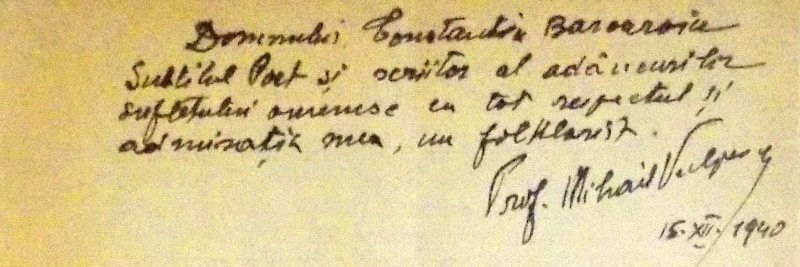 Domnului Constantin Barcaroiu
Subtilul Poet și scriitor al adâncurilor
sufletului omenesc cu tot respectul și
admirația mea, un folklorist.
Prof. Mihail Vulpescu
15.XII.1940